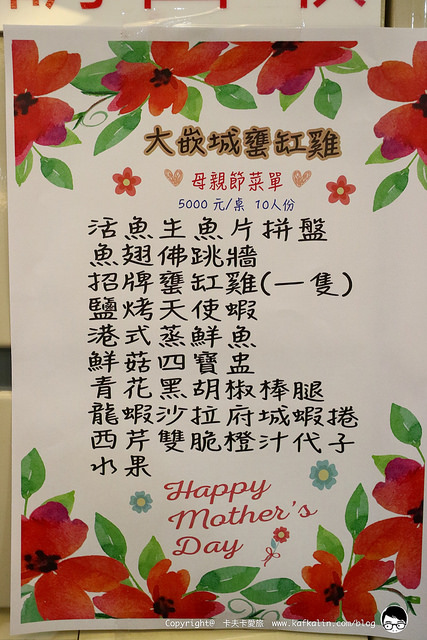 大嵌城甕缸雞
母親節菜單
5000元/桌 10人份
活魚生魚片拼盤
魚翅佛跳牆
招牌甕缸雞(一隻)
鹽烤天使蝦
港式蒸鮮魚
鮮菇四寶盅
青花黑胡椒棒腿
龍蝦沙拉府城蝦捲
西芹雙脆橙汁代子
水果
Happy
Mother's
Day
Copyright@ 卡夫卡愛旅 www.kafkalin.com/blog